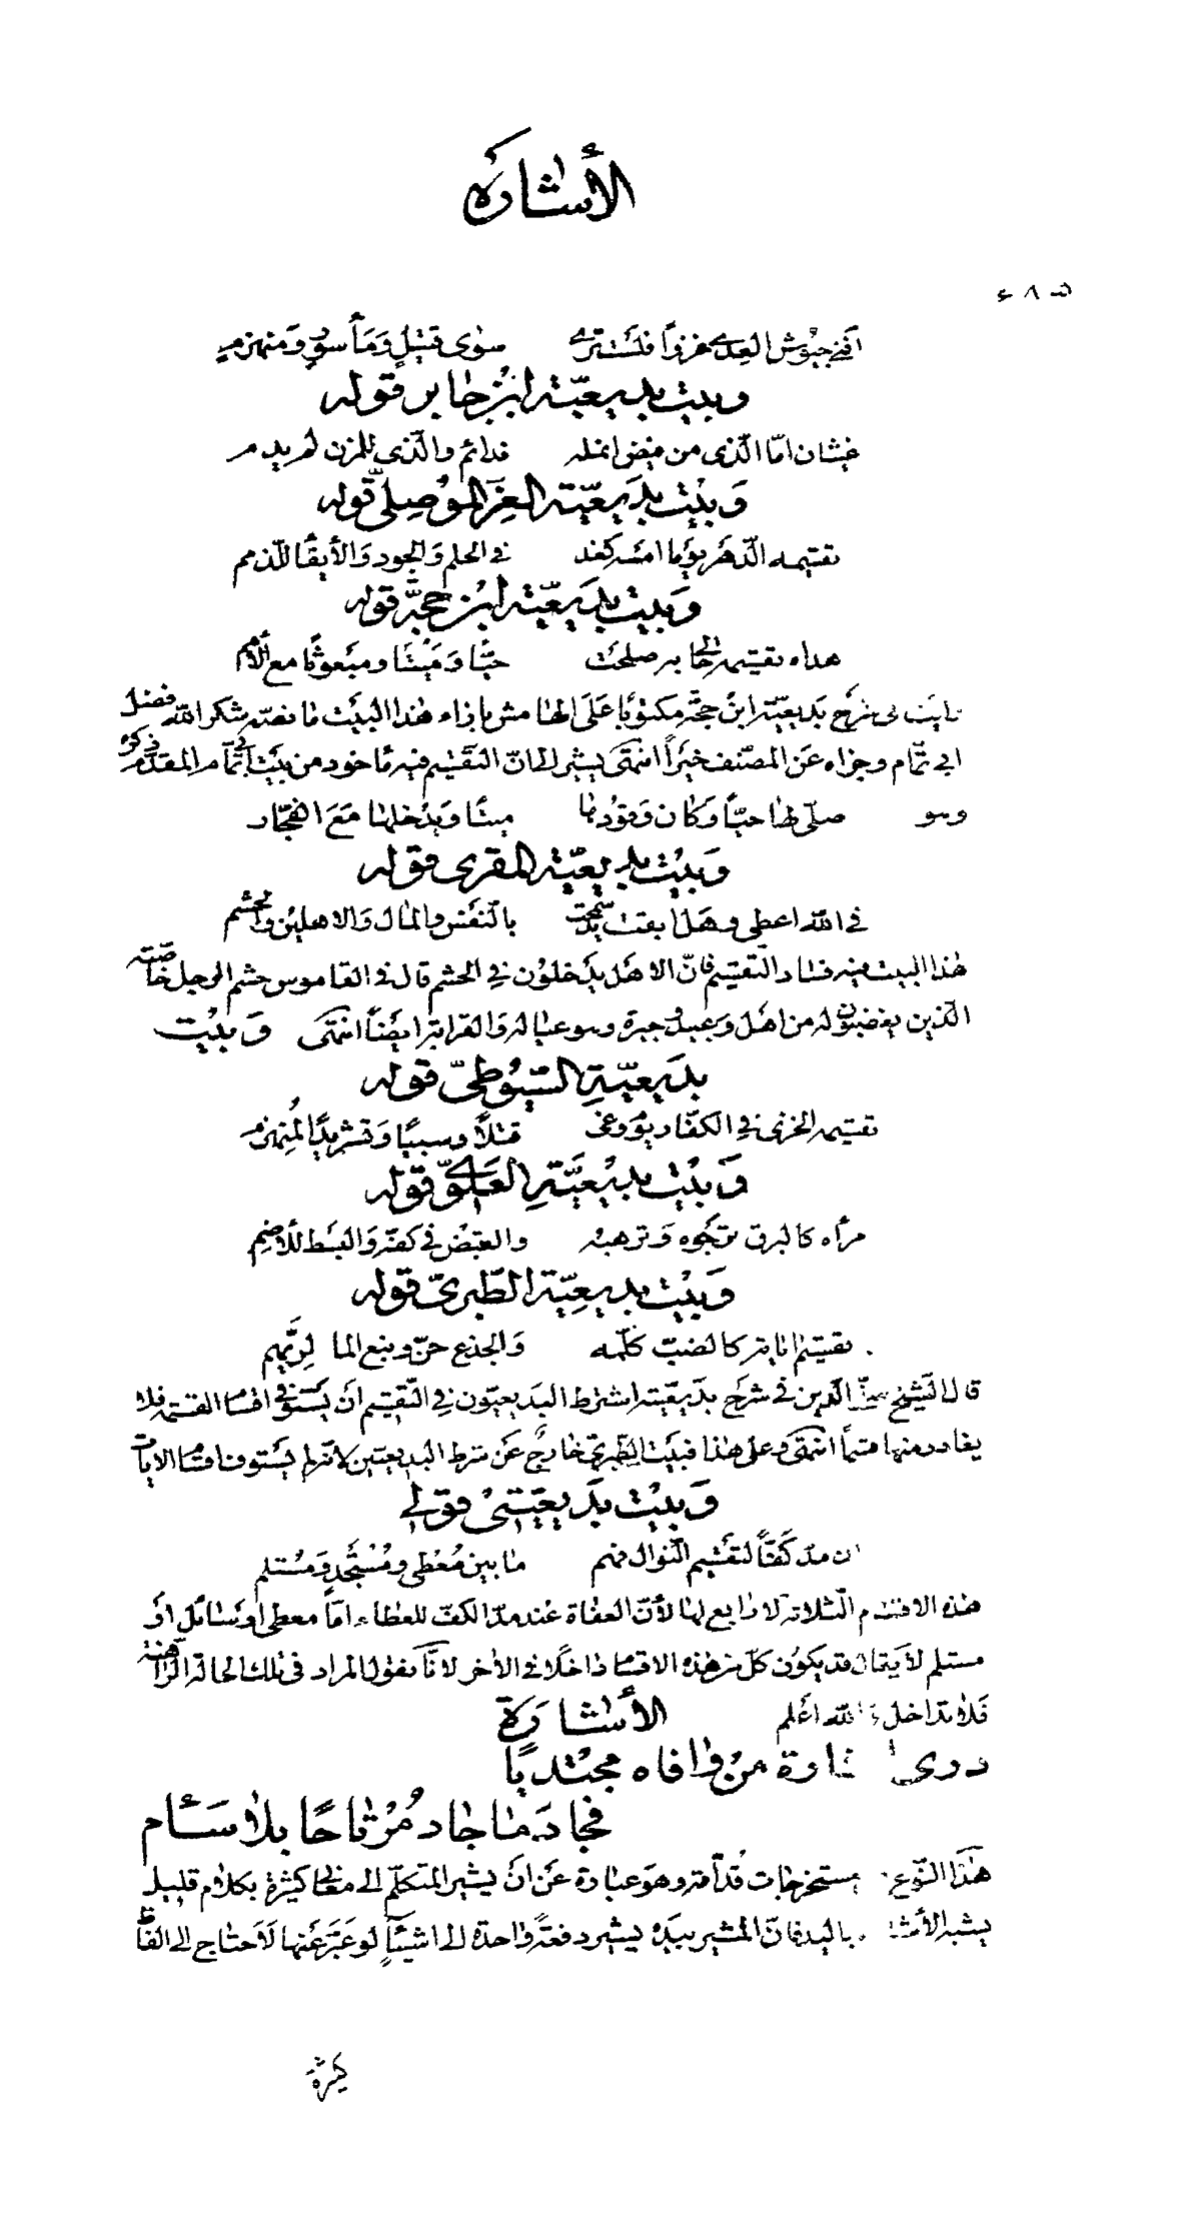 الأشارة
٥٨٤
أفنى جيوش العدى غزواً فلست ترى سوى قتيلٍ ومأسورٍ ومنهزم
وبيت بديعيّة ابن جابر قوله
غيثان امّا الّذى من فيض انمله فدائم والّذى للمزن لم يدم
وبيت بديعيّة العزّ الموصلىّ قوله
تقسيمه الدّهر يومًا امسه كغد فى الحلم والجود والأيفا للذمم
وبيت بديعيّة ابن حجّة قوله
هداه تقسيمه حالى به صلحت حيًّا وميتًا ومبعوثًا مع الأمم
رايت فى شرح بديعيّة ابن حجّة مكتوبًا على الهامش بازاء هذا البيت ما نصّه شكر الله فضل
ابى تمّام وجزاه عن المصنّف خيرًا انتهى يشير الى انّ التّقسيم فيه مأخوذ من بيت ابى تمّام المقدّم ذكره
وهو صلّى لها حيًّا وكان وقودها ميتًا ويدخلها مع الفجّار
وبيت بديعيّة المقرى قوله
فى الله اعطى وهل ابقت يد سمحت بالنّفس والمال والاهلين والحشم
هذا البيت فيه فساد التّقسيم فانّ الاهل يدخلون فى الحشم قال فى القاموس حشم الرجل خاصّته
الّذين يغضبون له من اهل وعبيد وجيرة وهو عياله والقرابة ايضًا انتهى وبيت
بديعيّة السّيوطىّ قوله
تقسيمه الخزى فى الكفّار يوم وغى قتلاً وسبيًا وتشريدًا لمنهزم
وبيت بديعيّة العلوىّ قوله
مرأه كالبرق ترجوه وترهبه والقبض فى كفّه والبسط للأضم
وبيت بديعيّة الطّبرىّ قوله
تقسيم اياته كالضبّ كلّمه والجذع حنّ ونبع الما لريّهم
قال الشيخ الدين فى شرح بديعيّته اشترط البديعيّون فى التّقسيم ان يستوفى اقسام القسمة فلا
يغادر منها قسمًا انتهى وعلى هذا فبيت الطّبرىّ خارج عن شرط البديعيّين لانّه لم يستوف اقسام الايات
وبيت بديعيّتى قولى
ان مدّ كفّاً لتقسيم النّوال فهم ما بين مُعْطى ومُسْتَجْدٍ ومُستلم
هذه الاقسام الثلاثة لا رابع لها لأنّ العفاة عند مدّ الكفّ للعطاء امّا معطى او سائل او
مستلم لا يقال قد يكون كلّ من هذه الاقسام داخلاً فى الأخر لانّا نقول المراد فى تلك الحالة الرّاهنة
فلا تداخل والله اعلم الأشارة
درى اشارة من وافاه مجتديًا
فجاد ما جاد مُرْتاحًا بلا سأم
هذا النّوع من مستخرجات قدامة وهو عبارة عن ان يشير المتكلّم الى معانى كثيرة بكلام قليل
يشبه الأشارة باليد فانّ المشير بيده يشير دفعةً واحدة الى اشياءٍ لو عبّر عنها لأحتاج الى الفاظ
كثيرة